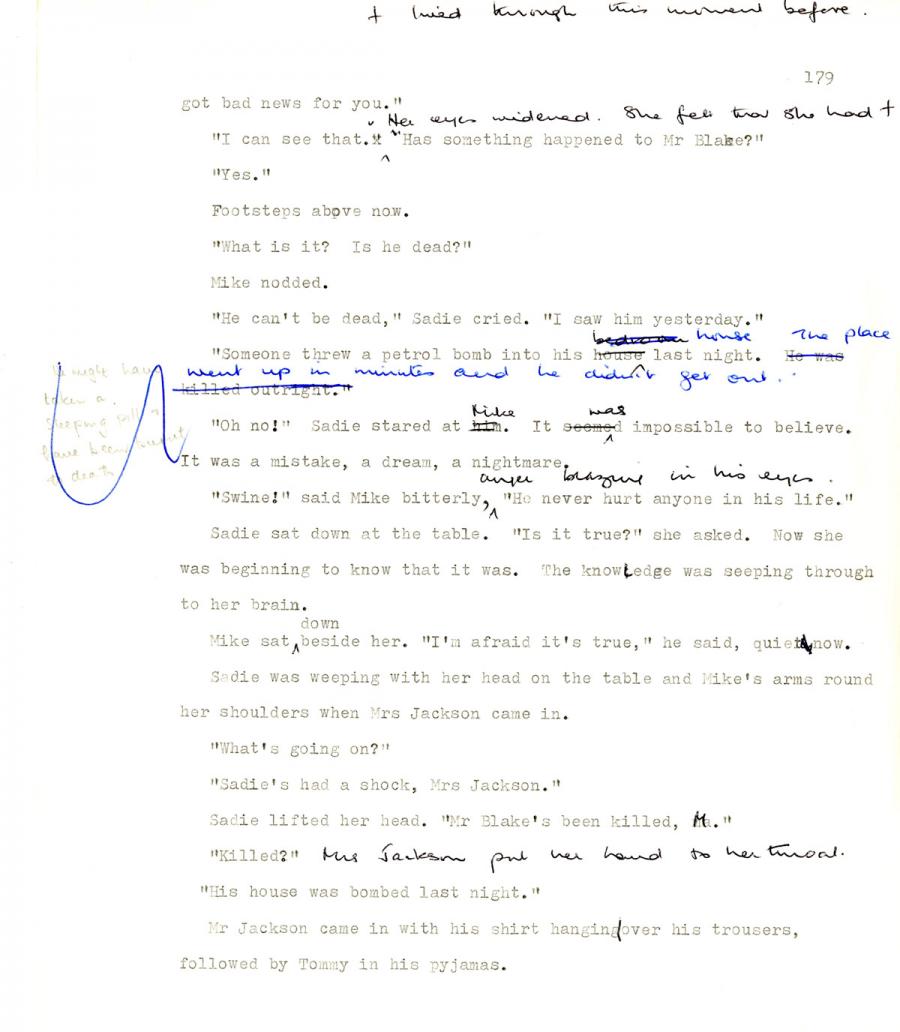 + lived through this moment before.
179
got bad news for you."
Her eyes widened. She felt that she had +
"I can see that." "Has something happened to Mr Blake?"
"Yes."
Footsteps above now.
"What is it?  Is he dead?"
Mike nodded.
"He can't be dead," Sadie cried. "I saw him yesterday."
bedroom house The place
"Someone threw a petrol bomb into his house last night. He was
went up in minutes and he didn't get out."
killed outright."
He might have
taken a
sleeping pill
have been burnt
to death
Mike was
"Oh no!"  Sadie stared at him.  It seemed impossible to believe.
It was a mistake, a dream, a nightmare.
anger blazing in his eyes.
"Swine!" said Mike bitterly, "He never hurt anyone in his life."
Sadie sat down at the table.  "Is it true?" she asked.  Now she
was beginning to know that it was.  The knowledge was seeping through
to her brain.
down
Mike sat beside her. "I'm afraid it's true," he said, quiet now.
Sadie was weeping with her head on the table and Mike's arms round
her shoulders when Mrs Jackson came in.
"What's going on?"
"Sadie's had a shock, Mrs Jackson."
Sadie lifted her head. "Mr Blake's been killed, Ma."
"Killed?" Mrs Jackson put her hand to her throat.
"His house was bombed last night."
Mr Jackson came in with his shirt hanging over his trousers,
followed by Tommy in his pyjamas.